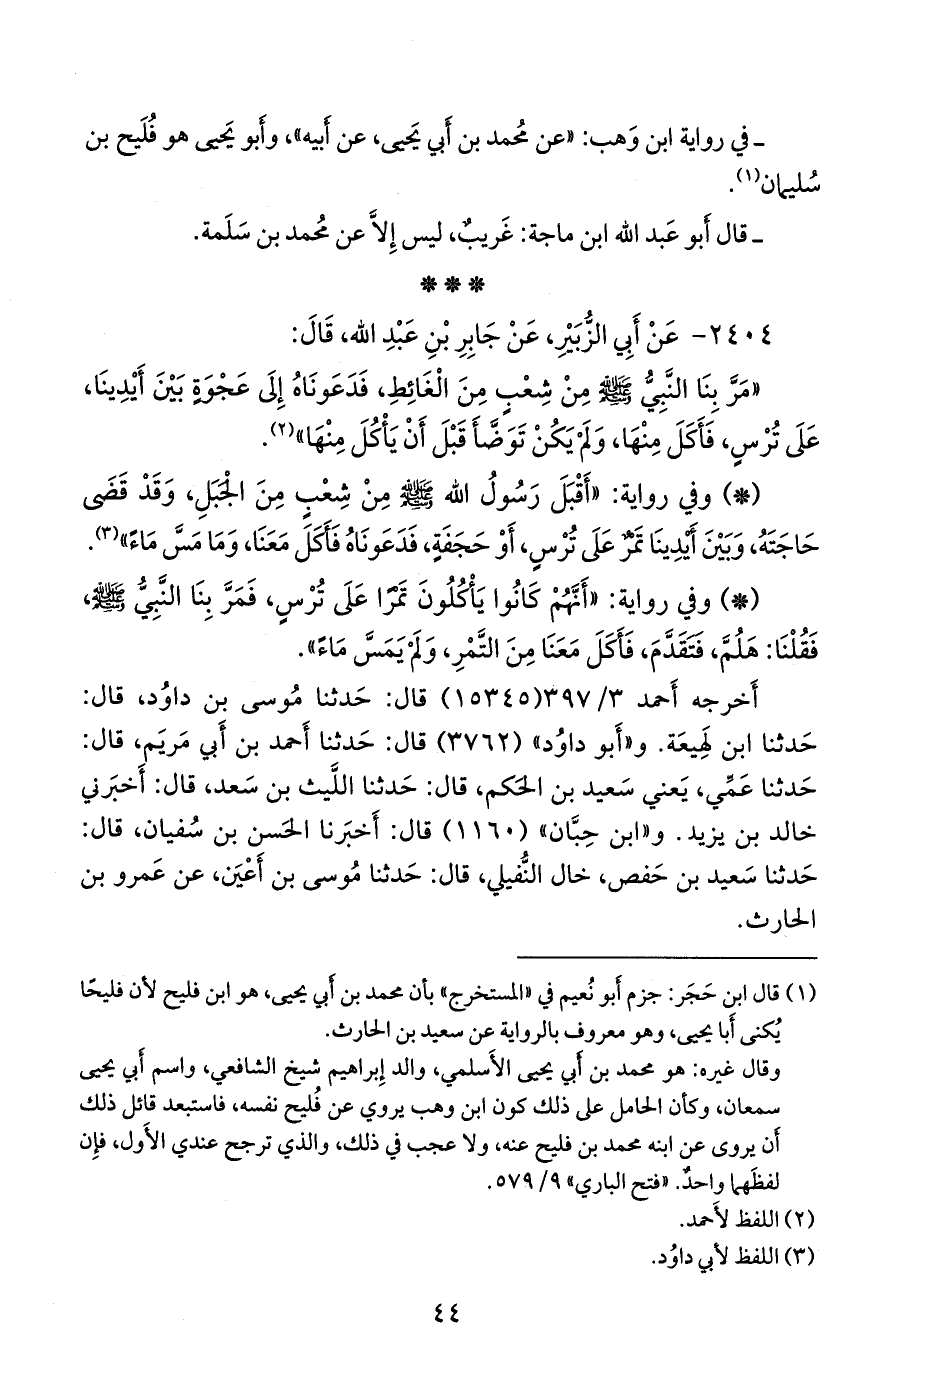 ـ في رواية ابن وَهب: «عن مُحمد بن أَبي يَحيى، عن أَبيه»، وأَبو يَحيى هو فُلَيح بن
سُليمان(١).
ـ قال أَبو عَبد الله ابن ماجة: غَريبٌ، ليس إِلاَّ عن مُحمد بن سَلَمة.
* * *
٢٤٠٤- عَنْ أَبِي الزُّبَيْرِ، عَنْ جَابِرِ بْنِ عَبْدِ الله، قَالَ:
«مَرَّ بِنَا النَّبِيُّ ﷺ مِنْ شِعْبٍ مِنَ الْغَائِطِ، فَدَعَوْنَاهُ إِلَى عَجْوَةٍ بَيْنَ أَيْدِينَا،
عَلَى تُرْسٍ، فَأَكَلَ مِنْهَا، وَلَمْ يَكُنْ تَوَضَّأَ قَبْلَ أَنْ يَأْكُلَ مِنْهَا»(٢).
(*) وفي رواية: «أَقْبَلَ رَسُولُ الله ﷺ مِنْ شِعْبٍ مِنَ الْجَبَلِ، وَقَدْ قَضَى
حَاجَتَهُ، وَبَيْنَ أَيْدِينَا تَمْرٌ عَلَى تُرْسٍ، أَوْ حَجَفَةٍ، فَدَعَوْنَاهُ فَأَكَلَ مَعَنَا، وَمَا مَسَّ مَاءً»(٣).
(*) وفي رواية: «أَنَّهُمْ كَانُوا يَأْكُلُونَ تَمْرًا عَلَى تُرْسٍ، فَمَرَّ بِنَا النَّبِيُّ ﷺ،
فَقُلْنَا: هَلُمَّ، فَتَقَدَّمَ، فَأَكَلَ مَعَنَا مِنَ التَّمْرِ، وَلَمْ يَمَسَّ مَاءً».
أَخرجه أَحمد ٣/ ٣٩٧(١٥٣٤٥) قال: حَدثنا مُوسى بن داوُد، قال:
حَدثنا ابن لَهِيعَة. و«أَبو داوُد» (٣٧٦٢) قال: حَدثنا أَحمد بن أَبي مَريَم، قال:
حَدثنا عَمِّي، يَعني سَعيد بن الحَكم، قال: حَدثنا اللَّيث بن سَعد، قال: أَخبَرني
خالد بن يزيد. و«ابن حِبَّان» (١١٦٠) قال: أَخبَرنا الحَسن بن سُفيان، قال:
حَدثنا سَعيد بن حَفص، خال النُّفيلي، قال: حَدثنا مُوسى بن أَعْيَن، عن عَمرو بن
الحارث.
(١) قال ابن حَجَر: جزم أَبو نُعيم في «المستخرج» بأن محمد بن أَبي يحيى، هو ابن فليح لأن فليحًا
يُكنى أَبا يحيى، وهو معروف بالرواية عن سعيد بن الحارث.
وقال غيره: هو محمد بن أَبي يحيى الأَسلمي، والد إِبراهيم شيخ الشافعي، واسم أَبي يحيى
سمعان، وكأن الحامل على ذلك كون ابن وهب يروي عن فُليح نفسه، فاستبعد قائل ذلك
أَن يروى عن ابنه محمد بن فليح عنه، ولا عجب في ذلك، والذي ترجح عندي الأَول، فإِن
لفظَهما واحدٌ. «فتح الباري» ٩/ ٥٧٩.
(٢) اللفظ لأَحمد.
(٣) اللفظ لأَبي داوُد.
٤٤